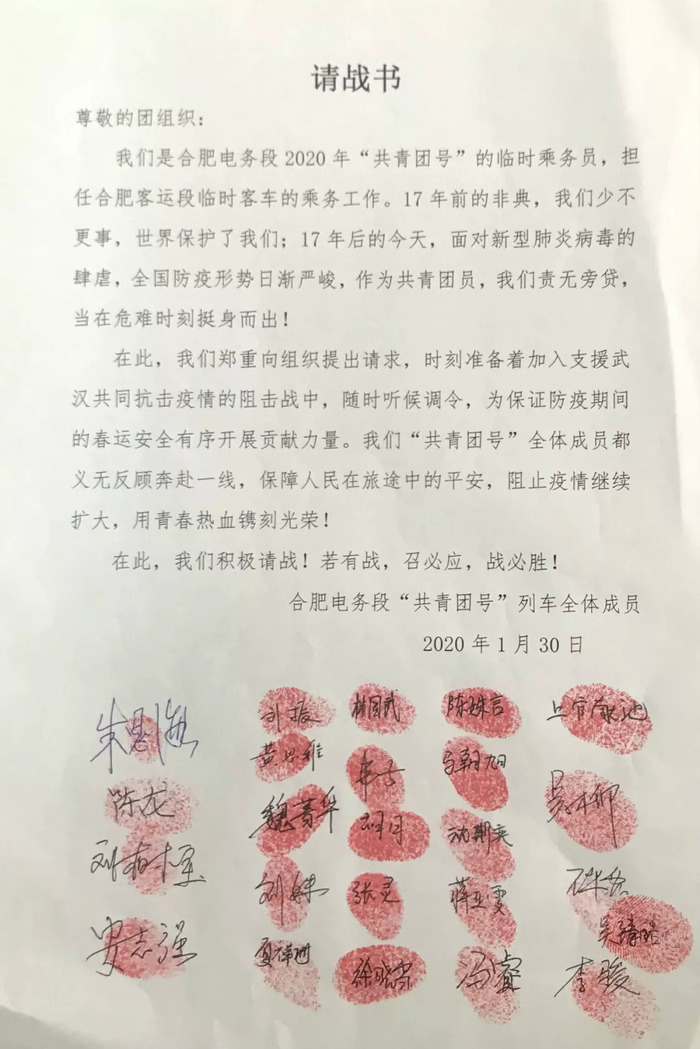 请战书
尊敬的团组织：
我们是合肥电务段 2020 年“共青团号”的临时乘务员，担
任合肥客运段临时客车的乘务工作。17 年前的非典，我们少不
更事，世界保护了我们；17 年后的今天，面对新型肺炎病毒的
肆虐，全国防疫形势日渐严峻，作为共青团员，我们责无旁贷，
当在危难时刻挺身而出！
在此，我们郑重向组织提出请求，时刻准备着加入支援武
汉共同抗击疫情的阻击战中，随时听候调令，为保证防疫期间
的春运安全有序开展贡献力量。我们“共青团号”全体成员都
义无反顾奔赴一线，保障人民在旅途中的平安，阻止疫情继续
扩大，用青春热血镌刻光荣！
在此，我们积极请战！若有战，召必应，战必胜！
合肥电务段“共青团号”列车全体成员
2020 年 1 月 30 日
刘振 陈姝言
黄思维
陈龙 魏菁华
刘姝 张灵 蒋亚雯
安志强 徐晓宗 冯睿 李骏